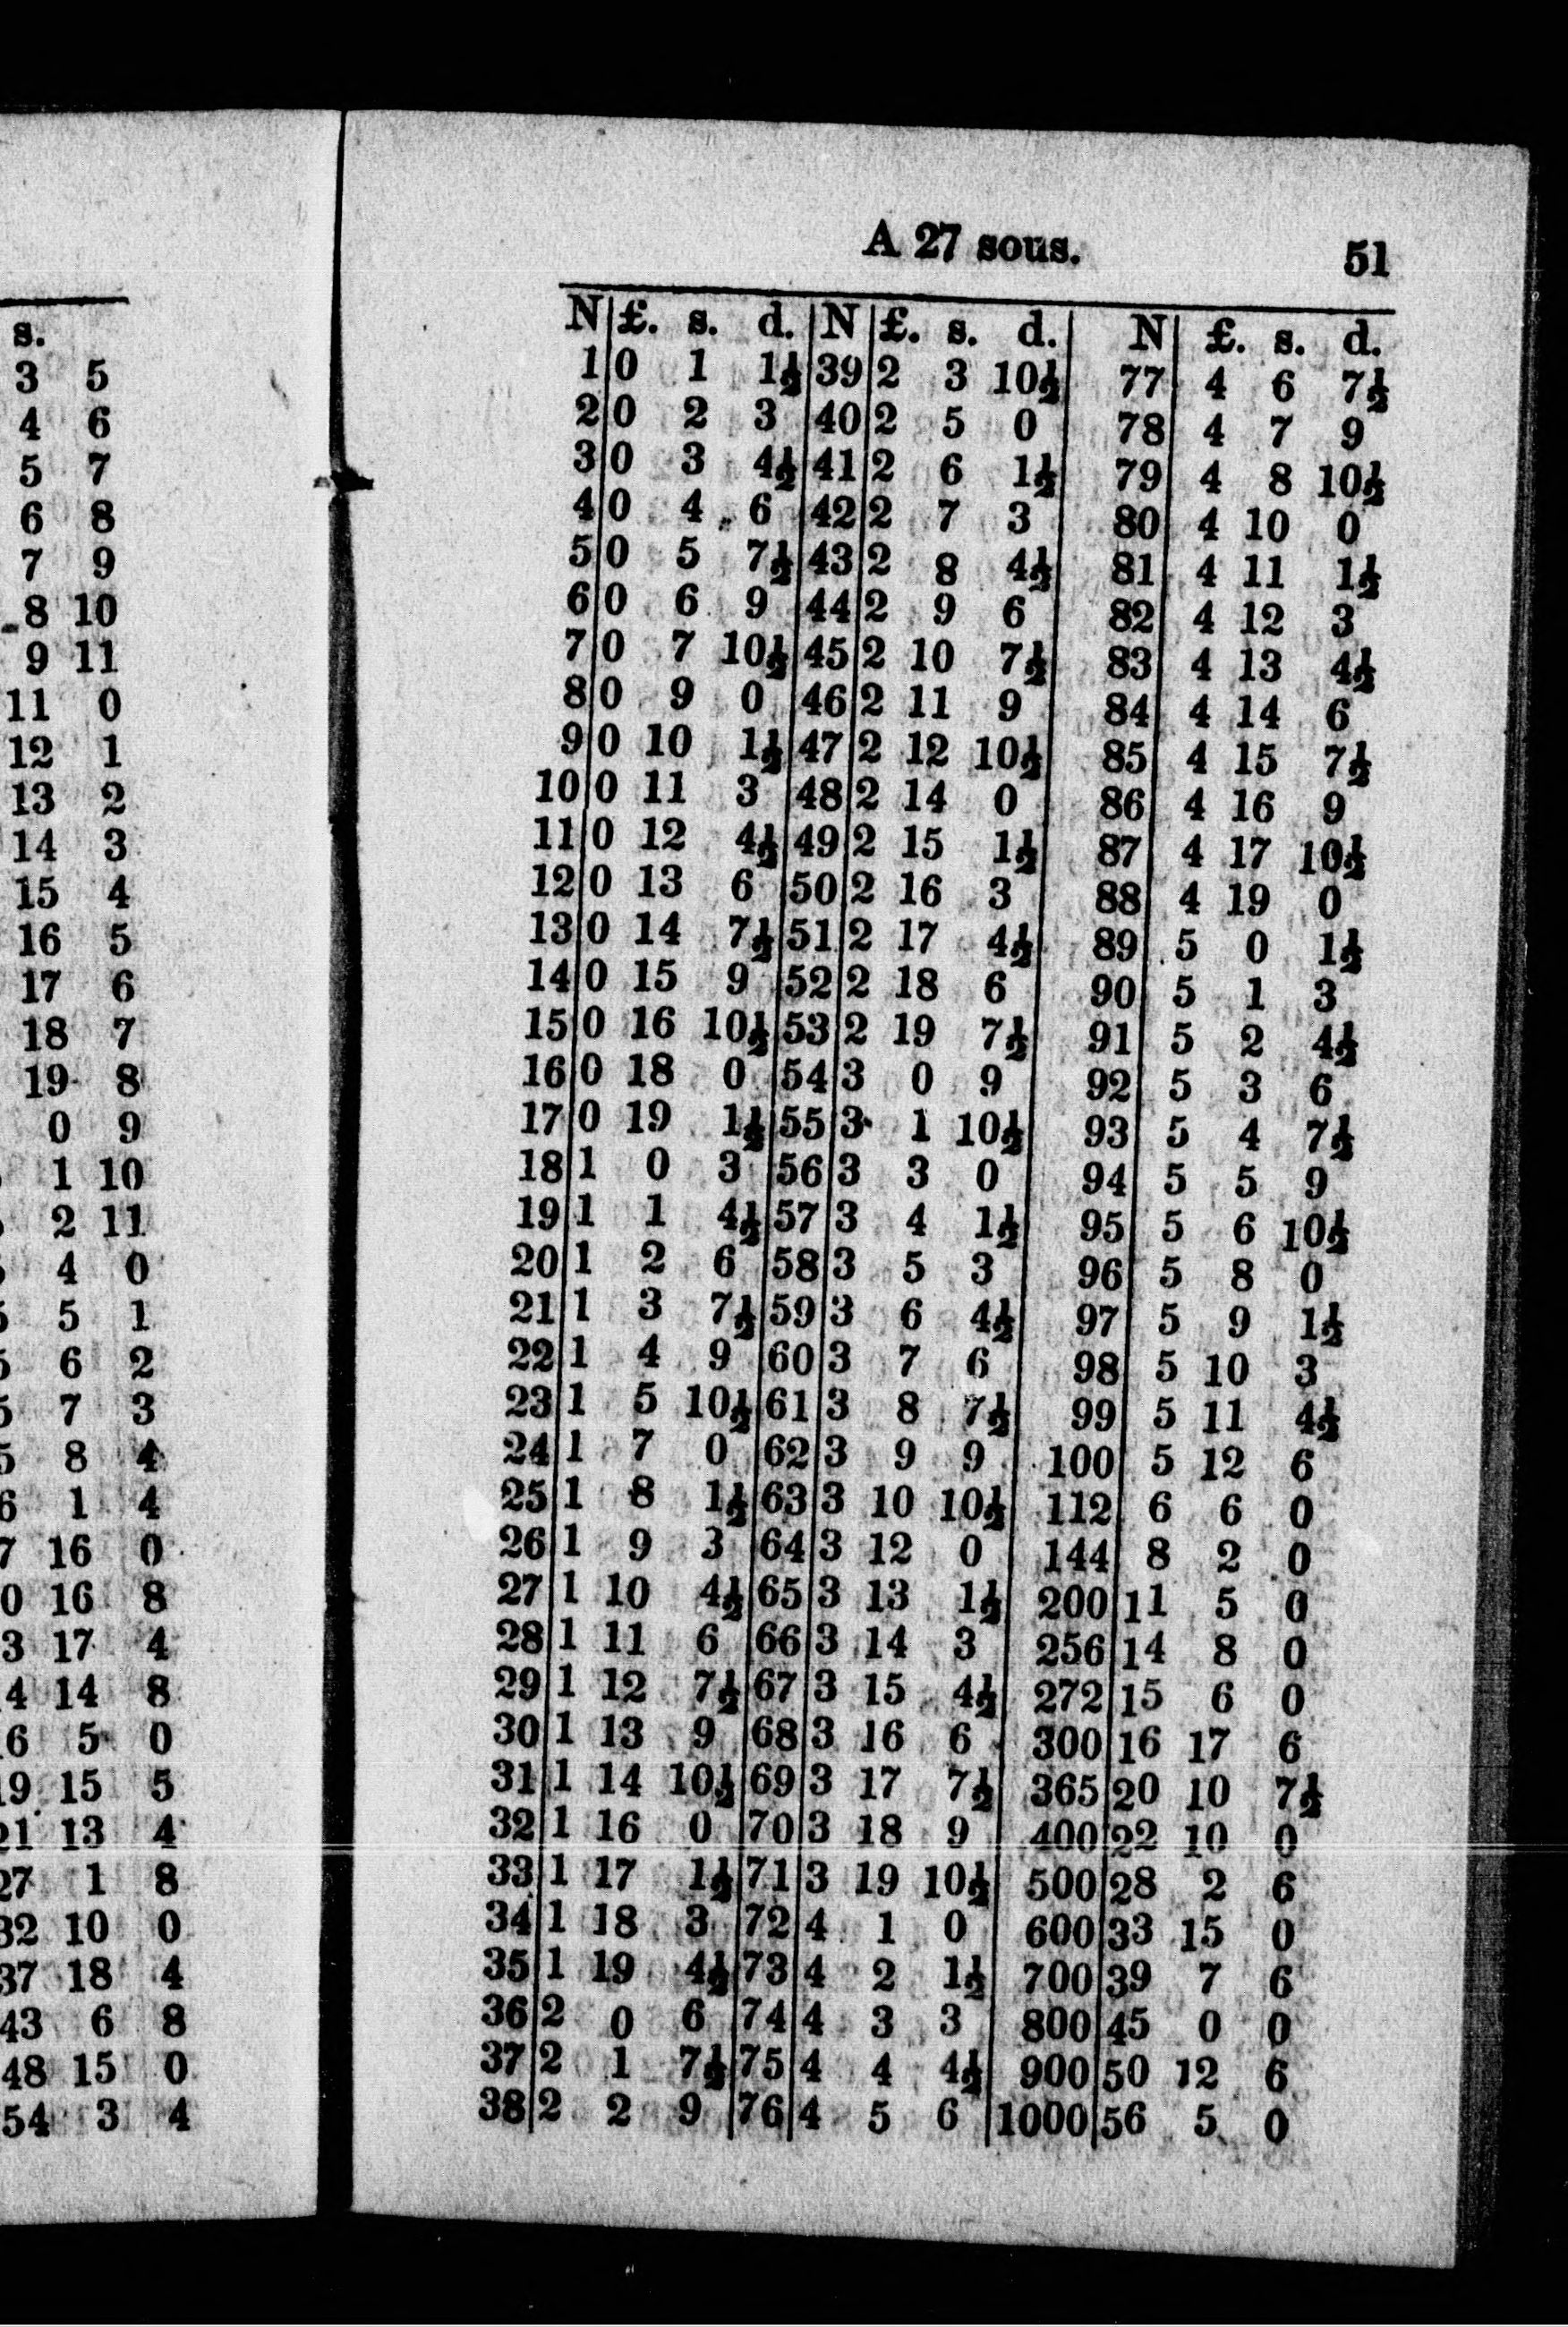 s.
3 5
4 6
5 7
6 8
7 9
8 10
9 11
11 0
12 1
13 2
14 3
15 4
16 5
17 6
18 7
19 8
0 9
1 10
2 11
4 0
5 1
6 2
7 3
8 4
1 4
16 0
16 8
17 4
14 8
5 0
15 5
13 4
1 8
10 0
18 4
43 6 8
48 15 0
54 3 4
A 27 sous. 51
N £. s. d. N £. s. d. N £. s. d.
1 0 1 1½ 39 2 3 10½ 77 4 6 7½
2 0 2 3 40 2 5 0 78 4 7 9
3 0 3 4½ 41 2 6 1½ 79 4 8 10½
4 0 4 6 42 2 7 3 80 4 10 0
5 0 5 7½ 43 2 8 4½ 81 4 11 1½
6 0 6 9 44 2 9 6 82 4 12 3
7 0 7 10½ 45 2 10 7½ 83 4 13 4½
8 0 9 0 46 2 11 9 84 4 14 6
9 0 10 1½ 47 2 12 10½ 85 4 15 7½
10 0 11 3 48 2 14 0 86 4 16 9
11 0 12 4½ 49 2 15 1½ 87 4 17 10½
12 0 13 6 50 2 16 3 88 4 19 0
13 0 14 7½ 51 2 17 4½ 89 5 0 1½
14 0 15 9 52 2 18 6 90 5 1 3
15 0 16 10½ 53 2 19 7½ 91 5 2 4½
16 0 18 0 54 3 0 9 92 5 3 6
17 0 19 1½ 55 3 1 10½ 93 5 4 7½
18 1 0 3 56 3 3 0 94 5 5 9
19 1 1 4½ 57 3 4 1½ 95 5 6 10½
20 1 2 6 58 3 5 3 96 5 8 0
21 1 3 7½ 59 3 6 4½ 97 5 9 1½
22 1 4 9 60 3 7 6 98 5 10 3
23 1 5 10½ 61 3 8 7½ 99 5 11 4½
24 1 7 0 62 3 9 9 100 5 12 6
25 1 8 1½ 63 3 10 10½ 112 6 6 0
26 1 9 3 64 3 12 0 144 8 2 0
27 1 10 4½ 65 3 13 1½ 200 11 5 0
28 1 11 6 66 3 14 3 256 14 8 0
29 1 12 7½ 67 3 15 4½ 272 15 6 0
30 1 13 9 68 3 16 6 300 16 17 6
31 1 14 10½ 69 3 17 7½ 365 20 10 7½
32 1 16 0 70 3 18 9 400 22 10 0
33 1 17 1½ 71 3 19 10½ 500 28 2 6
34 1 18 3 72 4 1 0 600 33 15 0
35 1 19 4½ 73 4 2 1½ 700 39 7 6
36 2 0 6 74 4 3 3 800 45 0 0
37 2 1 7½ 75 4 4 4½ 900 50 12 6
38 2 2 9 76 4 5 6 1000 56 5 0